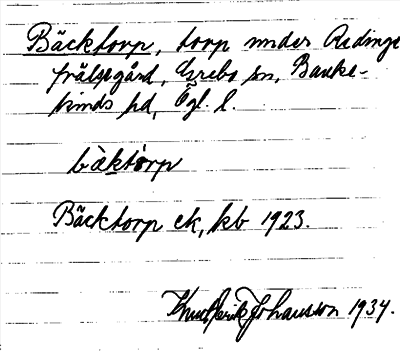 Bäcktorp, torp under Redinge
frälsegård, Grebo sn, Banke-
kinds hd, Ögl. l.
bäktårp
Bäcktorp ek, kb 1923.
Knut Erik Johansson 1934.